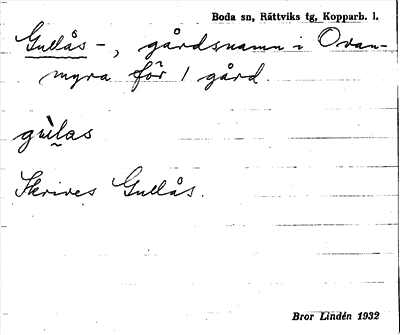 Boda sn, Rättviks tg, Kopparb. l.
Gullås -, gårdsnamn i Ovan-
myra för 1 gård.
gùlas
Skrives Gullås.
Bror Lindén 1932